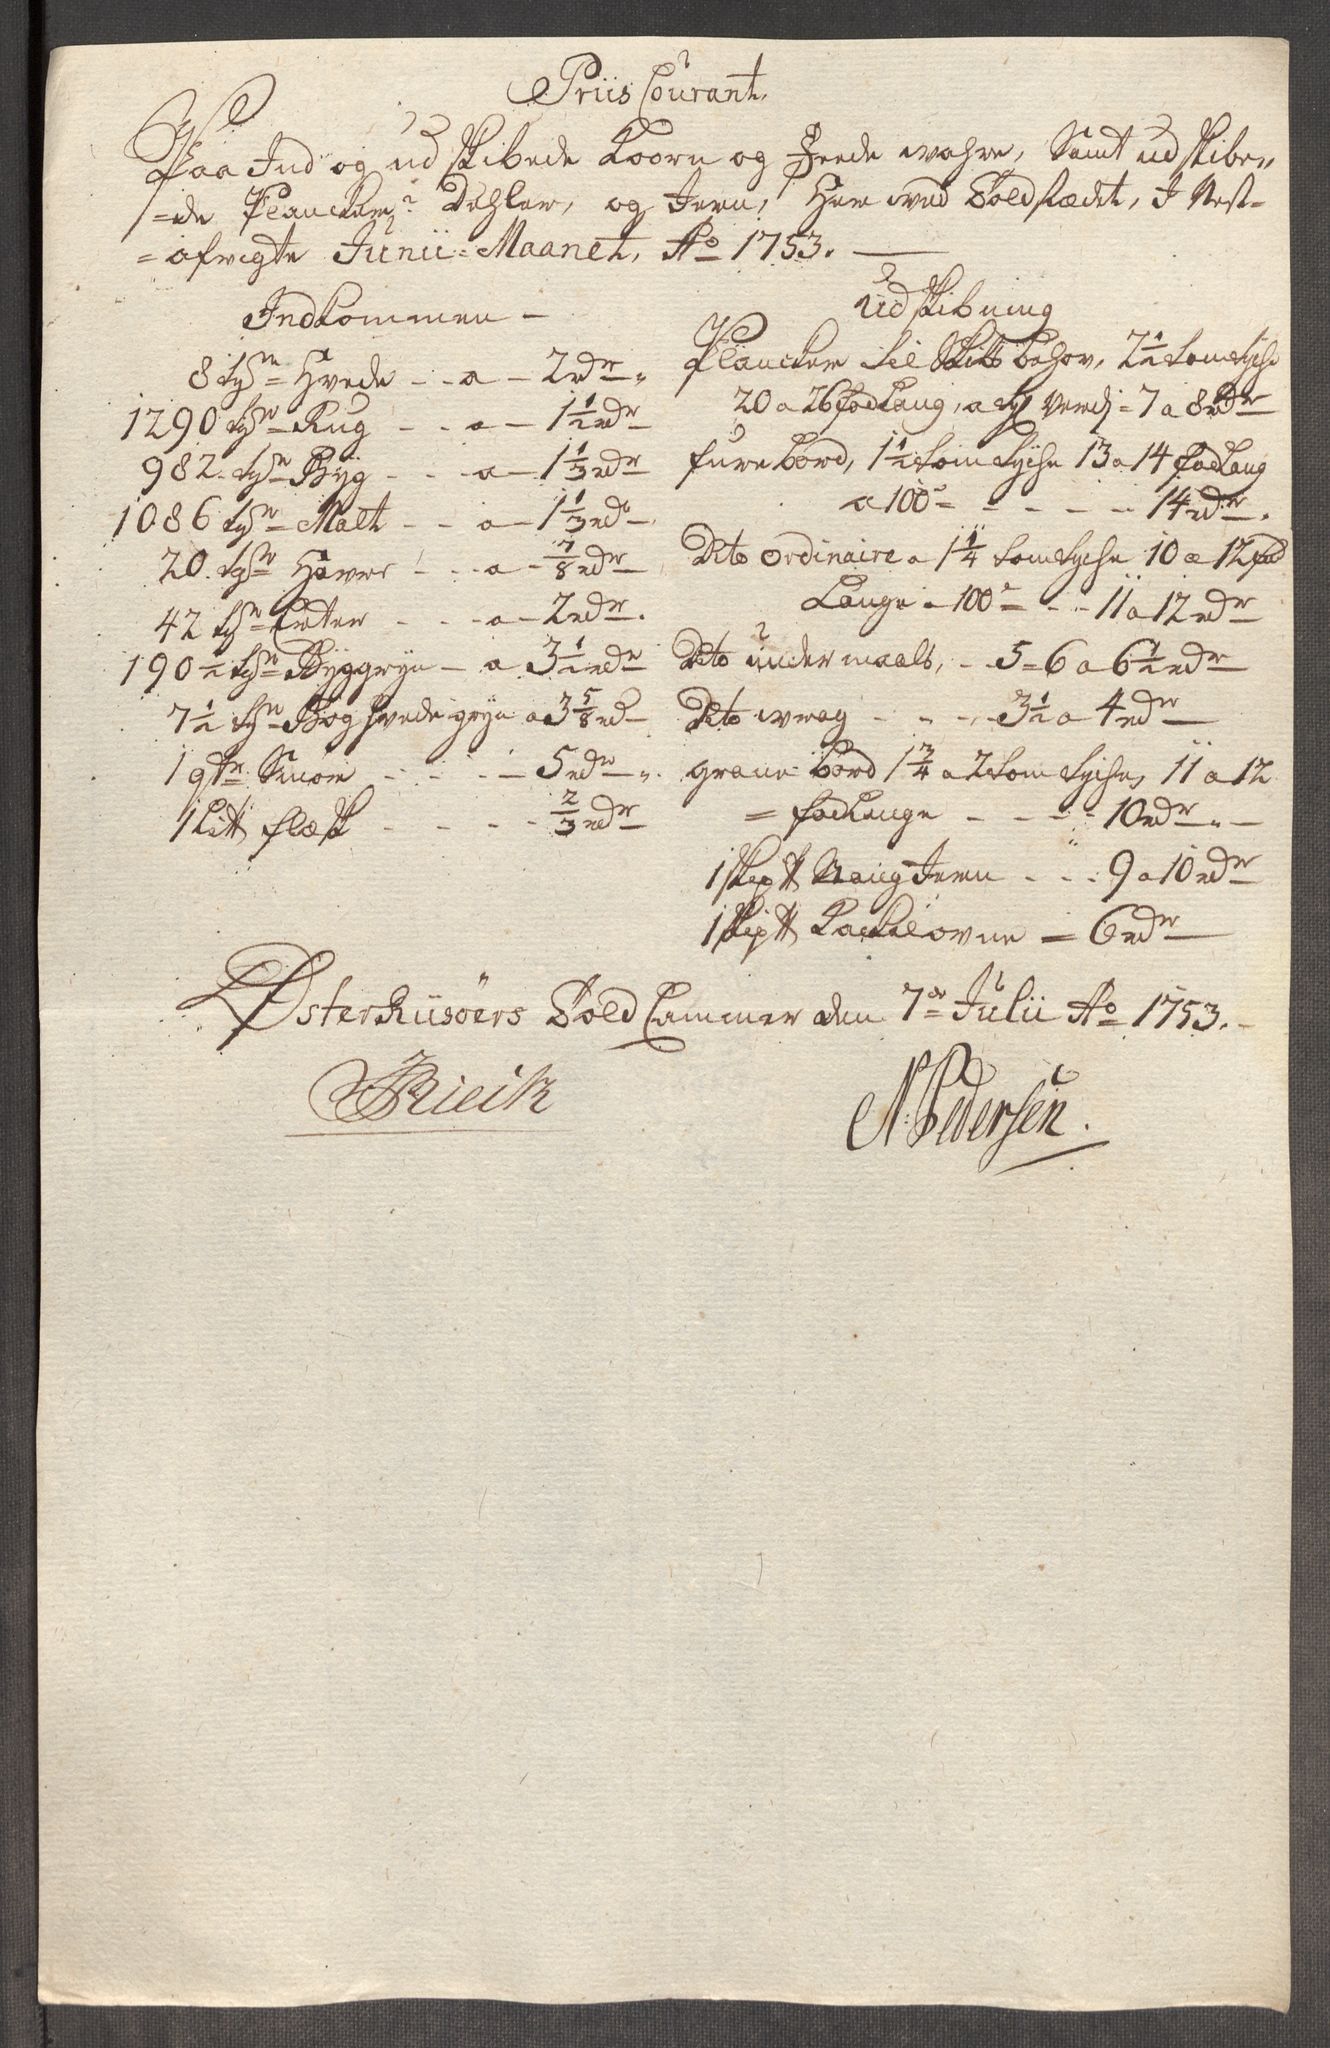 Priis Courant,
Paa Ind og udskibede Koorn og Feede wahre, Samt udskibe-
=de Plancker, Dehler, og Jern, Her wed Toldstædet, I Nest-
=afvigte Junii=Maanet, Ao 1753.
Indkommen –
8 tønr Hvede - - a - 2 rdr
1290 tønr Rug - - a - 1 1/2 rdr
982 tønr Byg - - a - 1 1/3 rdr
1086 tønr Malt - - a - 1 1/3 rdr
20 tønr Haver - - a - 7/8 rdr
42 tønr Erter - - a - 2 rdr.
190 1/2 tønr Byggryn - a 3 1/2 rdr
7 1/2 tønr Boghvedegryn a 3 5/8 rdr
1 qtr Smør - - - 5 rdr
1 Li℔ flæsk - - - 2/3 rdr
Udskibning
Plancker til Skibs behov, 2 1/2 tom tyche
20 a 26 fod Lang, a ty verdj = 7 a 8 rdr
furebord, 1 1/2 tom tyche 13 a 14 fod Lang
a 100 = - - - 14 rdr.
Dito ordinaire a 1 1/4 tom tyche 10 a 12 fod
Lange a 100 = - - 11 a 12 rdr
Dito under maals, - 5 = 6 a 6 1/2 rdr
Dito wrag - - - 3 1/2 a 4 rdr
grane bord 1 3/4 a 2 tom tyche, 11 a 12
= fod Lange - - - 10 rdr
1 Skip℔ Stang Jern - - 9 a 10 rdr
1 Skip℔ Kackelovne = 6 rdr
Østerriisøers Told Cammer den 7de Julii Ao 1753.
N. Pedersen.